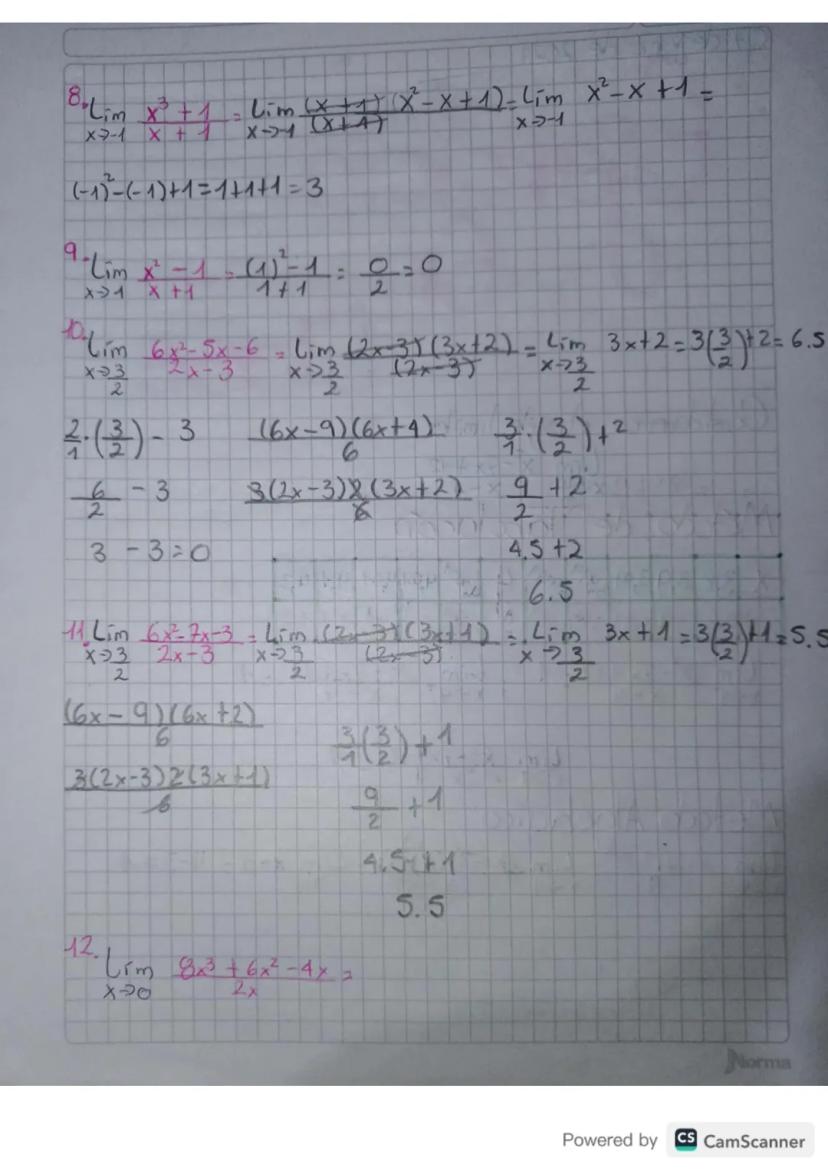 8. Lim x→-1 x³ + 1 / x + 1 = Lim x→-1 (x+1)(x² - x + 1) / (x+1) = Lim x→-1 x² - x + 1 =
(-1)² - (-1) + 1 = 1+1+1 = 3
9. Lim x→1 x² - 1 / x + 1 = (1)² - 1 / 1 + 1 = 0/2 = 0
10. Lim x→3/2 6x² - 5x - 6 / 2x - 3 = Lim x→3/2 (2x-3)(3x+2) / (2x-3) = Lim x→3/2 3x+2 = 3(3/2)+2 = 6.5
2/1 · (3/2) - 3 (6x-9)(6x+4) / 6 3/1 · (3/2) + 2
6/2 - 3 3(2x-3)2(3x+2) / 6 9/2 + 2
3 - 3 = 0 4.5 + 2
6.5
11. Lim x→3/2 6x² - 7x - 3 / 2x - 3 = Lim x→3/2 (2x-3)(3x+1) / (2x-3) = Lim x→3/2 3x + 1 = 3(3/2)+1 = 5.5
(6x - 9)(6x + 2) / 6 3/1 (3/2) + 1
3(2x-3)2(3x+1) / 6 9/2 + 1
4.5 + 1
5.5
12. Lim x→0 8x³ + 6x² - 4x / 2x =
Norma
Powered by CS CamScanner